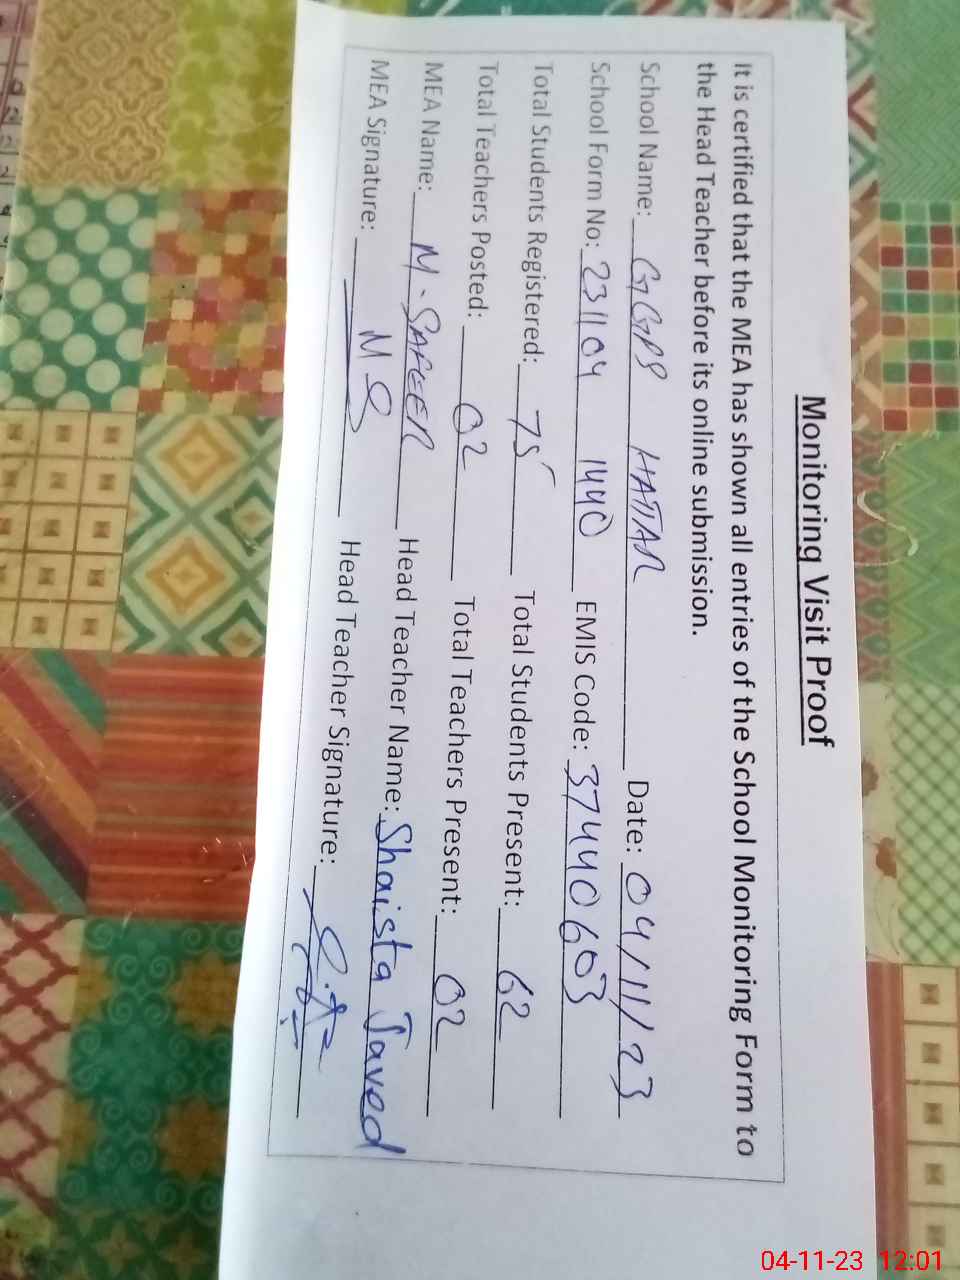 Monitoring Visit Proof
It is certified that the MEA has shown all entries of the School Monitoring Form to
the Head Teacher before its online submission.
School Name: GGPS HATTAR Date: 04/11/23
School Form No: 231104 1440 EMIS Code: 37440603
Total Students Registered: 75 Total Students Present: 62
Total Teachers Posted: 02 Total Teachers Present: 02
MEA Name: M-SAFEER Head Teacher Name: Shaista Javed
MEA Signature: MS Head Teacher Signature:
04-11-23 12:01